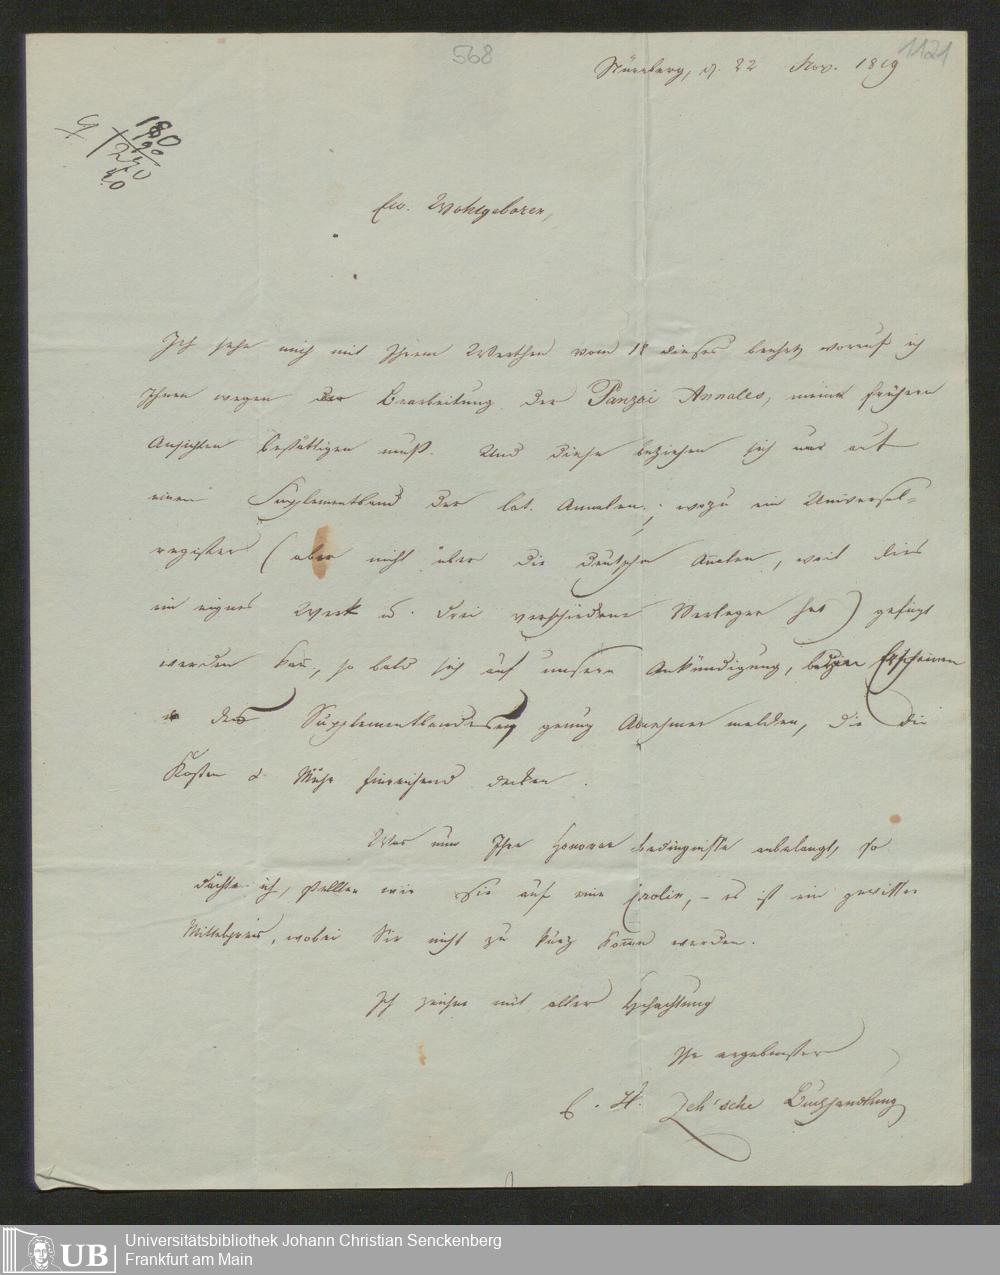 568
1121
Nürnberg, d. 22 Nov. 1819
180
90
270
Ew. Wohlgeboren,
Ich sehe mich mit Ihrem Werthen vom 18 dieses beehrt, worauf ich
Ihnen wegen der Bearbeitung der Panzer Annales, meine frühern
Ansichten bestättigen muß. Und diese beziehen sich nur auf
einen Supplementband der lat. Annalen; wozu ein Universal=
register (aber nicht über die deutschen Analen, weil dies
ein eignes Werk u. drei verschiedene Verleger hat) gefügt
werden kan̄, so bald sich auf unsere Ankündigung, Erscheinen
des Supplementbandes genug Abnehmer melden, die die
Kosten u. Mühe hinreichend decken.
Was nun Ihre Honorar Bedingnisse anbelangt, so
dächte ich, stellten wir Sie auf eine Carolin, – es ist ein gewisser
Mittelpreis, wobei Sie nicht zu kurz kom̄en werden.
Ich zeichne mit aller Hochachtung
Ihr ergebenster
C. H. Zeh'sche Buchhandlung
UB
Universitätsbibliothek Johann Christian Senckenberg
Frankfurt am Main